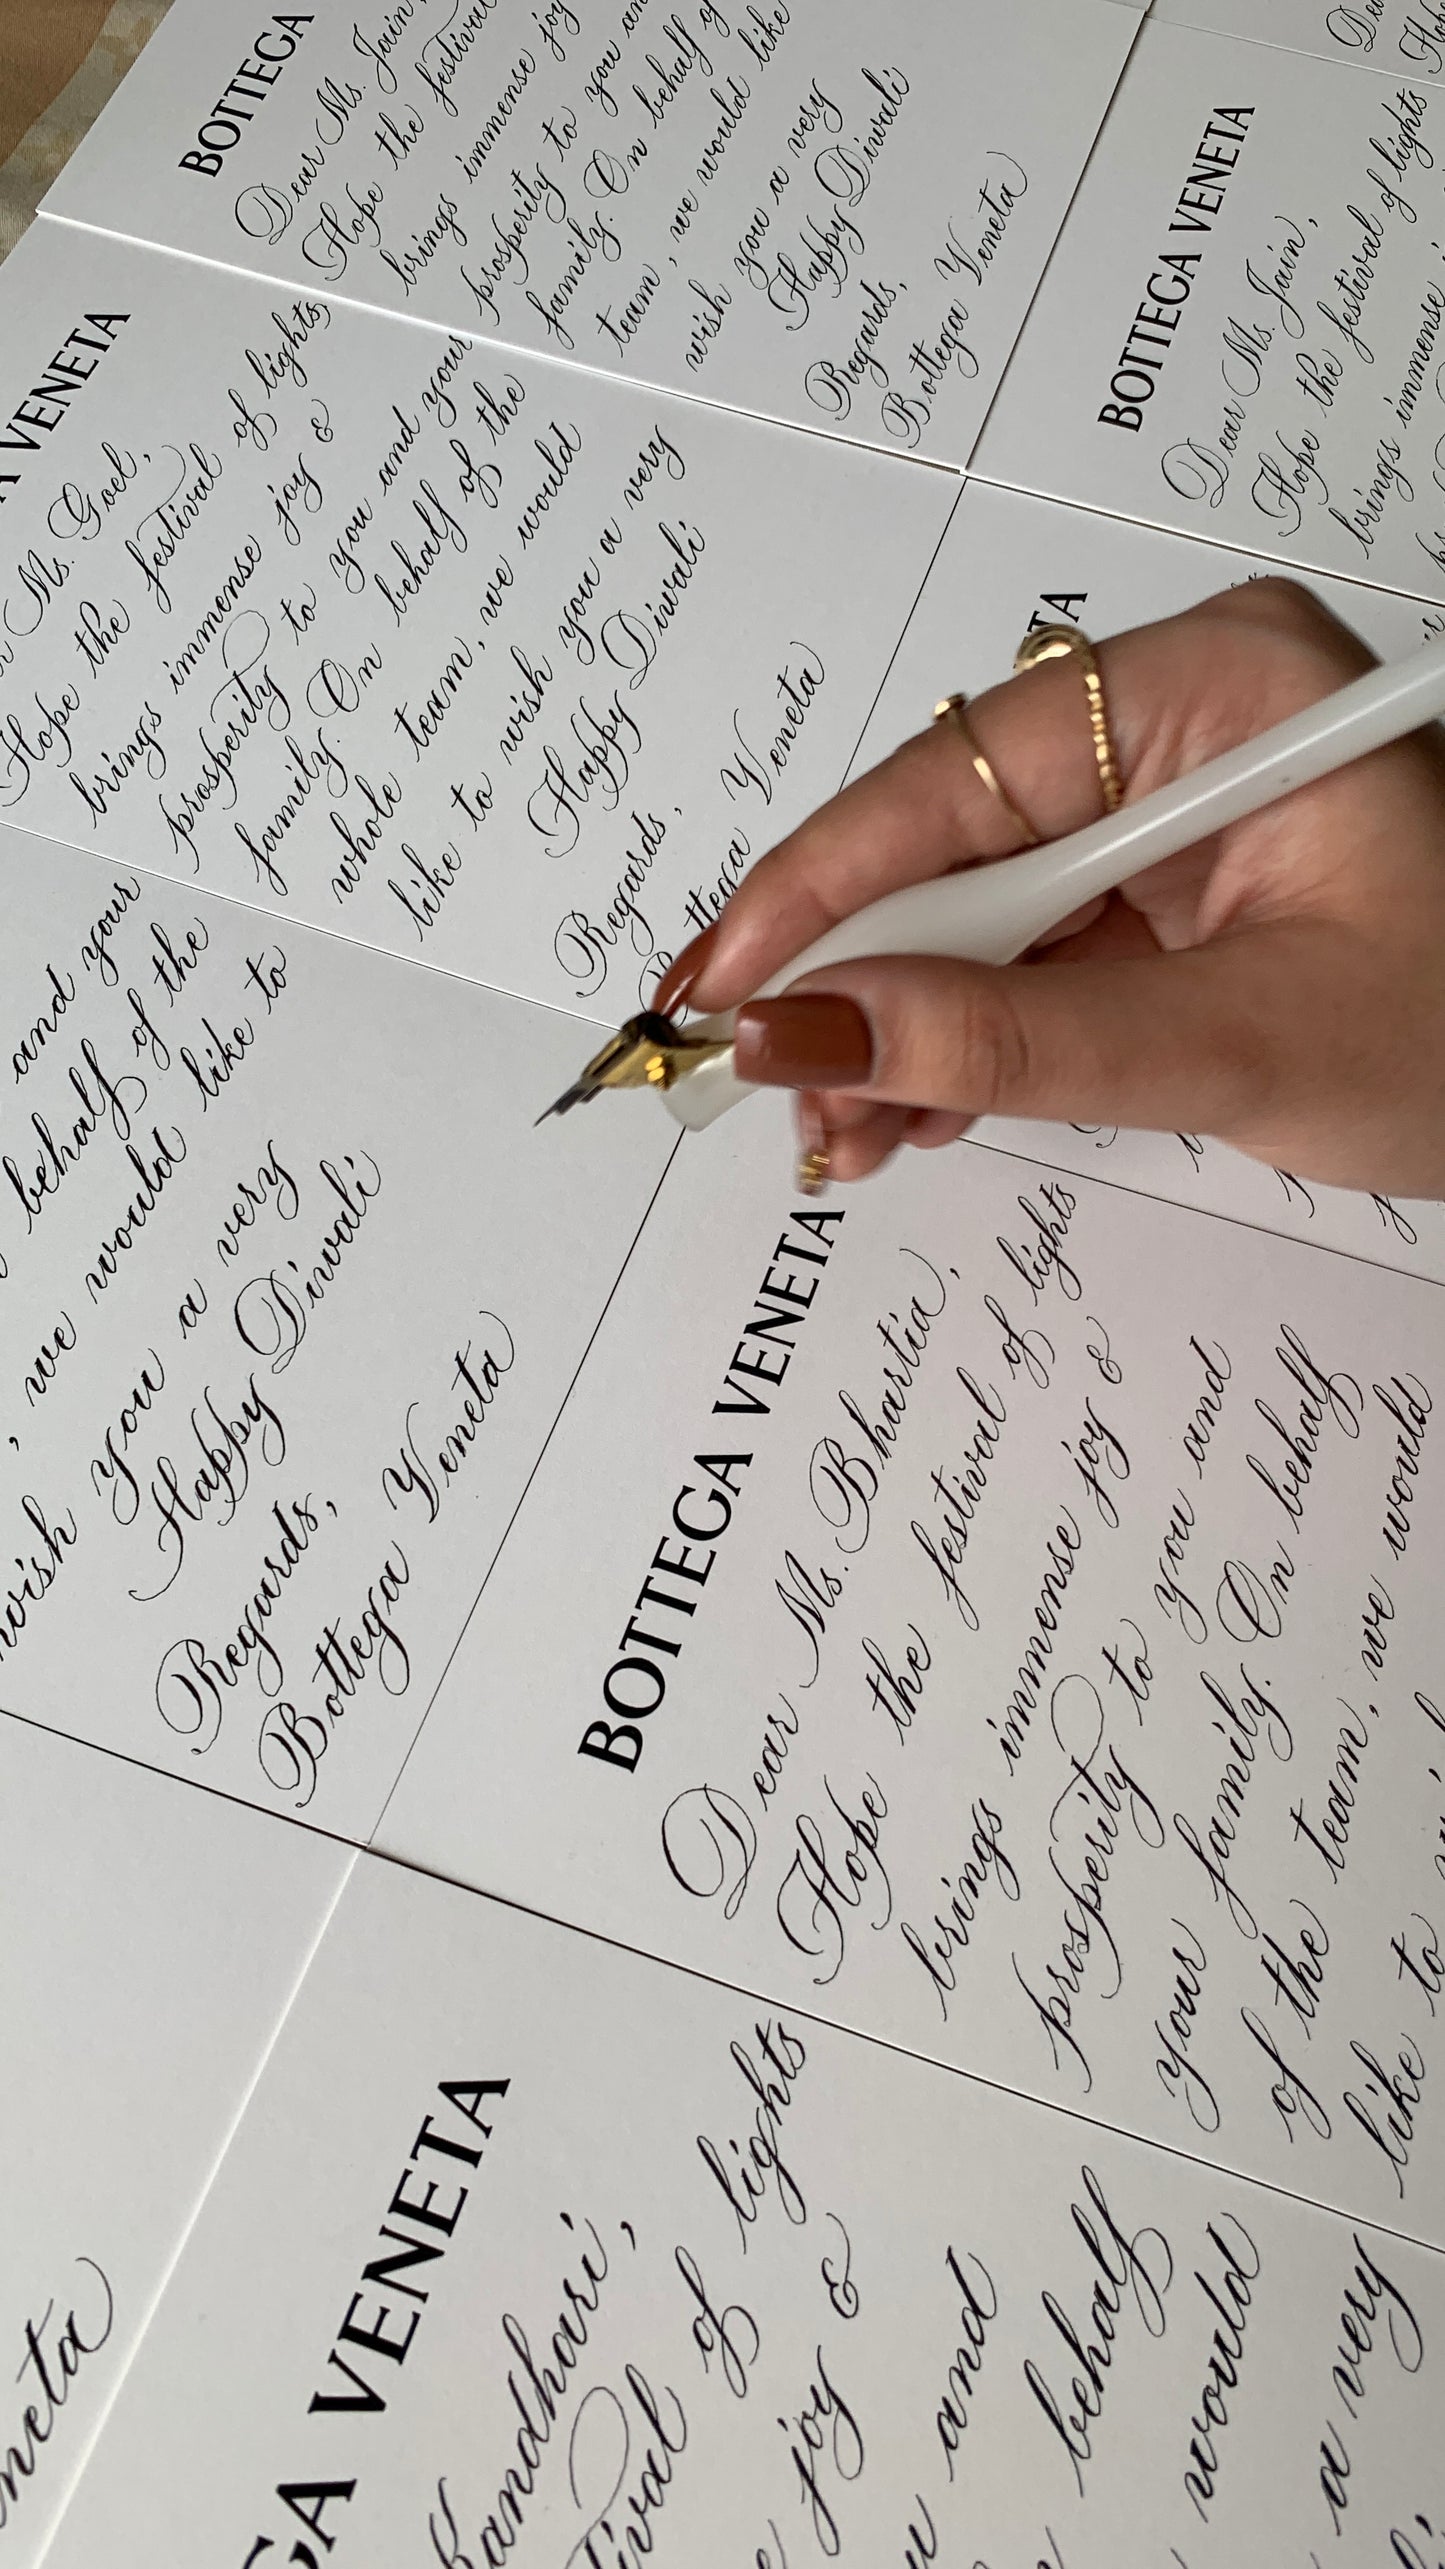 BOTTEGA
Dear Ms. Jain,
Hope the festival
brings immense joy
prosperity to you an
family. On behalf of
team, we would like
wish you a very
Happy Divali
Regards,
Bottega Veneta
BOTTEGA VENETA
Dear Ms. Jain,
Hope the festival of lights
brings immense
A VENETA
Ms. Goel,
Hope the festival of lights
brings immense joy &
prosperity to you and your
family. On behalf of the
whole team, we would
like to wish you a very
Happy Divali
Regards,
Bottega Veneta
TA
and your
behalf of the
, we would like to
wish you a very
Happy Divali
Regards,
Bottega Veneta
BOTTEGA VENETA
Dear Ms. Bhartia,
Hope the festival of lights
brings immense joy &
prosperity to you and
your family. On behalf
of the team, we would
like to
GA VENETA
andhari,
tival of lights
joy &
u and
behalf
would
a very
neta